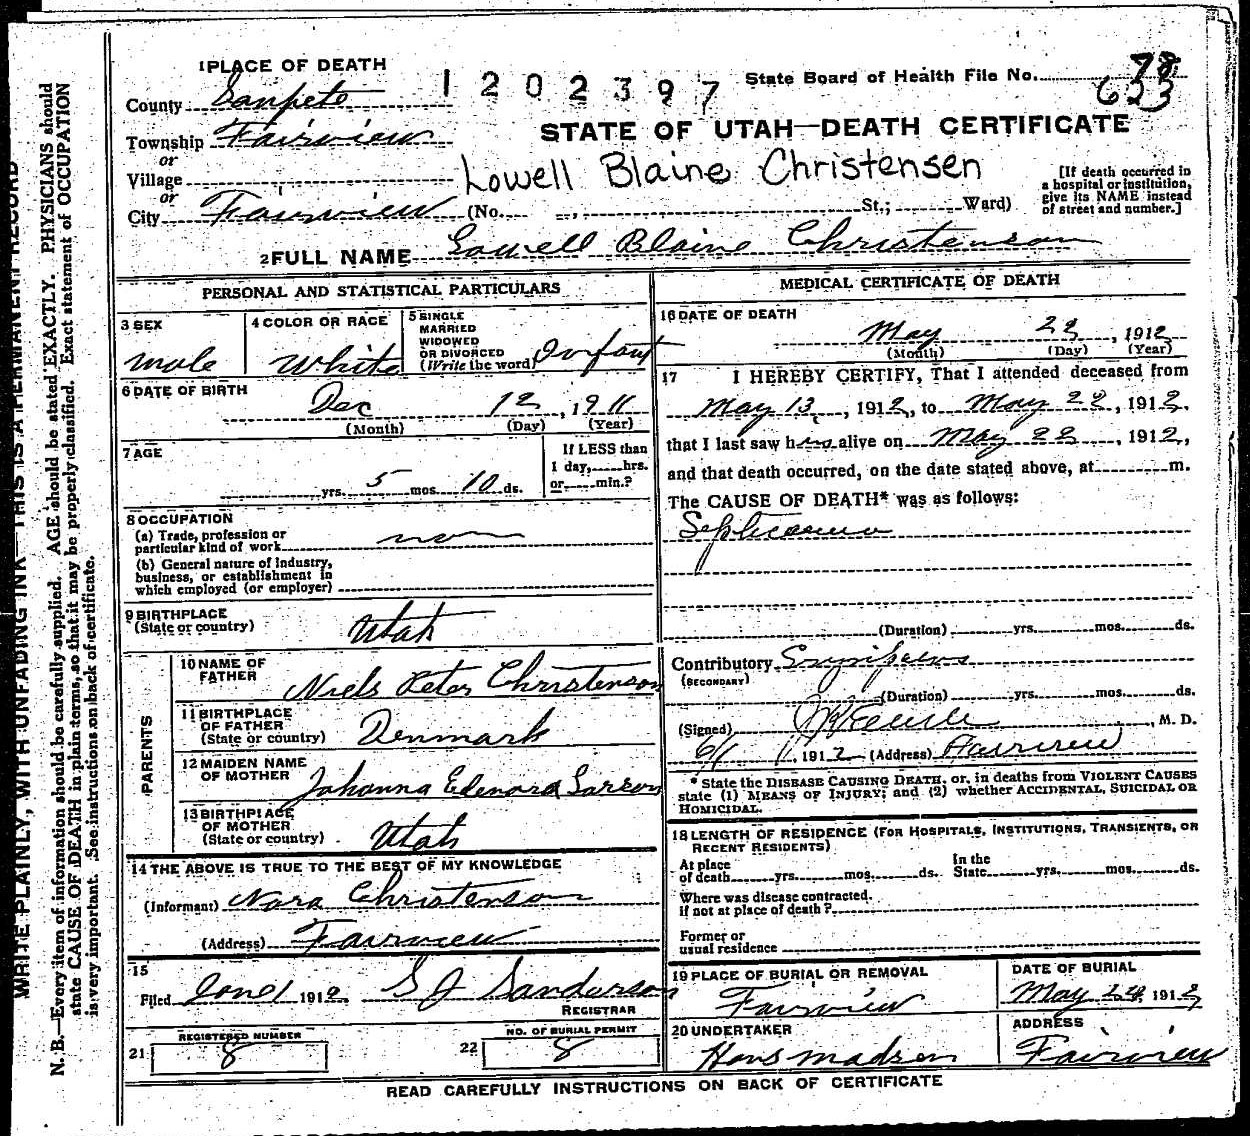 1 PLACE OF DEATH
1202397
State Board of Health File No. 78
623
County Sanpete
STATE OF UTAH—DEATH CERTIFICATE
Township Fairview
or
Village
Lowell Blaine Christensen
[If death occurred in
a hospital or institution,
give its NAME instead
of street and number.]
or
City Fairview (No. St.; Ward)
2 FULL NAME Lowell Blaine Christenson
PERSONAL AND STATISTICAL PARTICULARS
3 SEX
male
4 COLOR OR RACE
White
5 SINGLE
MARRIED
WIDOWED
OR DIVORCED
(Write the word) Infant
6 DATE OF BIRTH
Dec 12, 1911
(Month) (Day) (Year)
7 AGE
yrs. 5 mos. 10 ds.
If LESS than
1 day, hrs.
or min.?
8 OCCUPATION
(a) Trade, profession or
particular kind of work
(b) General nature of industry,
business, or establishment in
which employed (or employer)
9 BIRTHPLACE
(State or country) Utah
PARENTS
10 NAME OF
FATHER Niels Peter Christenson
11 BIRTHPLACE
OF FATHER
(State or country) Denmark
12 MAIDEN NAME
OF MOTHER Johanna Edenora Larson
13 BIRTHPLACE
OF MOTHER
(State or country) Utah
14 THE ABOVE IS TRUE TO THE BEST OF MY KNOWLEDGE
(Informant) Nora Christenson
(Address) Fairview
15
Filed June 1 1912 S J Sanderson
REGISTRAR
21 REGISTERED NUMBER
8
22 NO. OF BURIAL PERMIT
8
MEDICAL CERTIFICATE OF DEATH
16 DATE OF DEATH
May 22, 1912
(Month) (Day) (Year)
17 I HEREBY CERTIFY, That I attended deceased from
May 13, 1912, to May 22, 1912,
that I last saw him alive on May 22, 1912,
and that death occurred, on the date stated above, at m.
The CAUSE OF DEATH* was as follows:
Septicaemia
(Duration) yrs. mos. ds.
Contributory Erysipelas
(SECONDARY)
(Duration) yrs. mos. ds.
(Signed) , M. D.
6/1, 1912 (Address) Fairview
* State the DISEASE CAUSING DEATH, or, in deaths from VIOLENT CAUSES
state (1) MEANS OF INJURY; and (2) whether ACCIDENTAL, SUICIDAL OR
HOMICIDAL.
18 LENGTH OF RESIDENCE (FOR HOSPITALS, INSTITUTIONS, TRANSIENTS, OR
RECENT RESIDENTS)
At place
of death yrs. mos. ds.
In the
State yrs. mos. ds.
Where was disease contracted.
if not at place of death?
Former or
usual residence
19 PLACE OF BURIAL OR REMOVAL
Fairview
DATE OF BURIAL
May 24, 1912
20 UNDERTAKER
Hans Madsen
ADDRESS
Fairview
READ CAREFULLY INSTRUCTIONS ON BACK OF CERTIFICATE
WRITE PLAINLY, WITH UNFADING INK—THIS IS A PERMANENT RECORD
N. B.—Every item of information should be carefully supplied. AGE should be stated EXACTLY. PHYSICIANS should
state CAUSE OF DEATH in plain terms, so that it may be properly classified. Exact statement of OCCUPATION
is very important. See instructions on back of certificate.